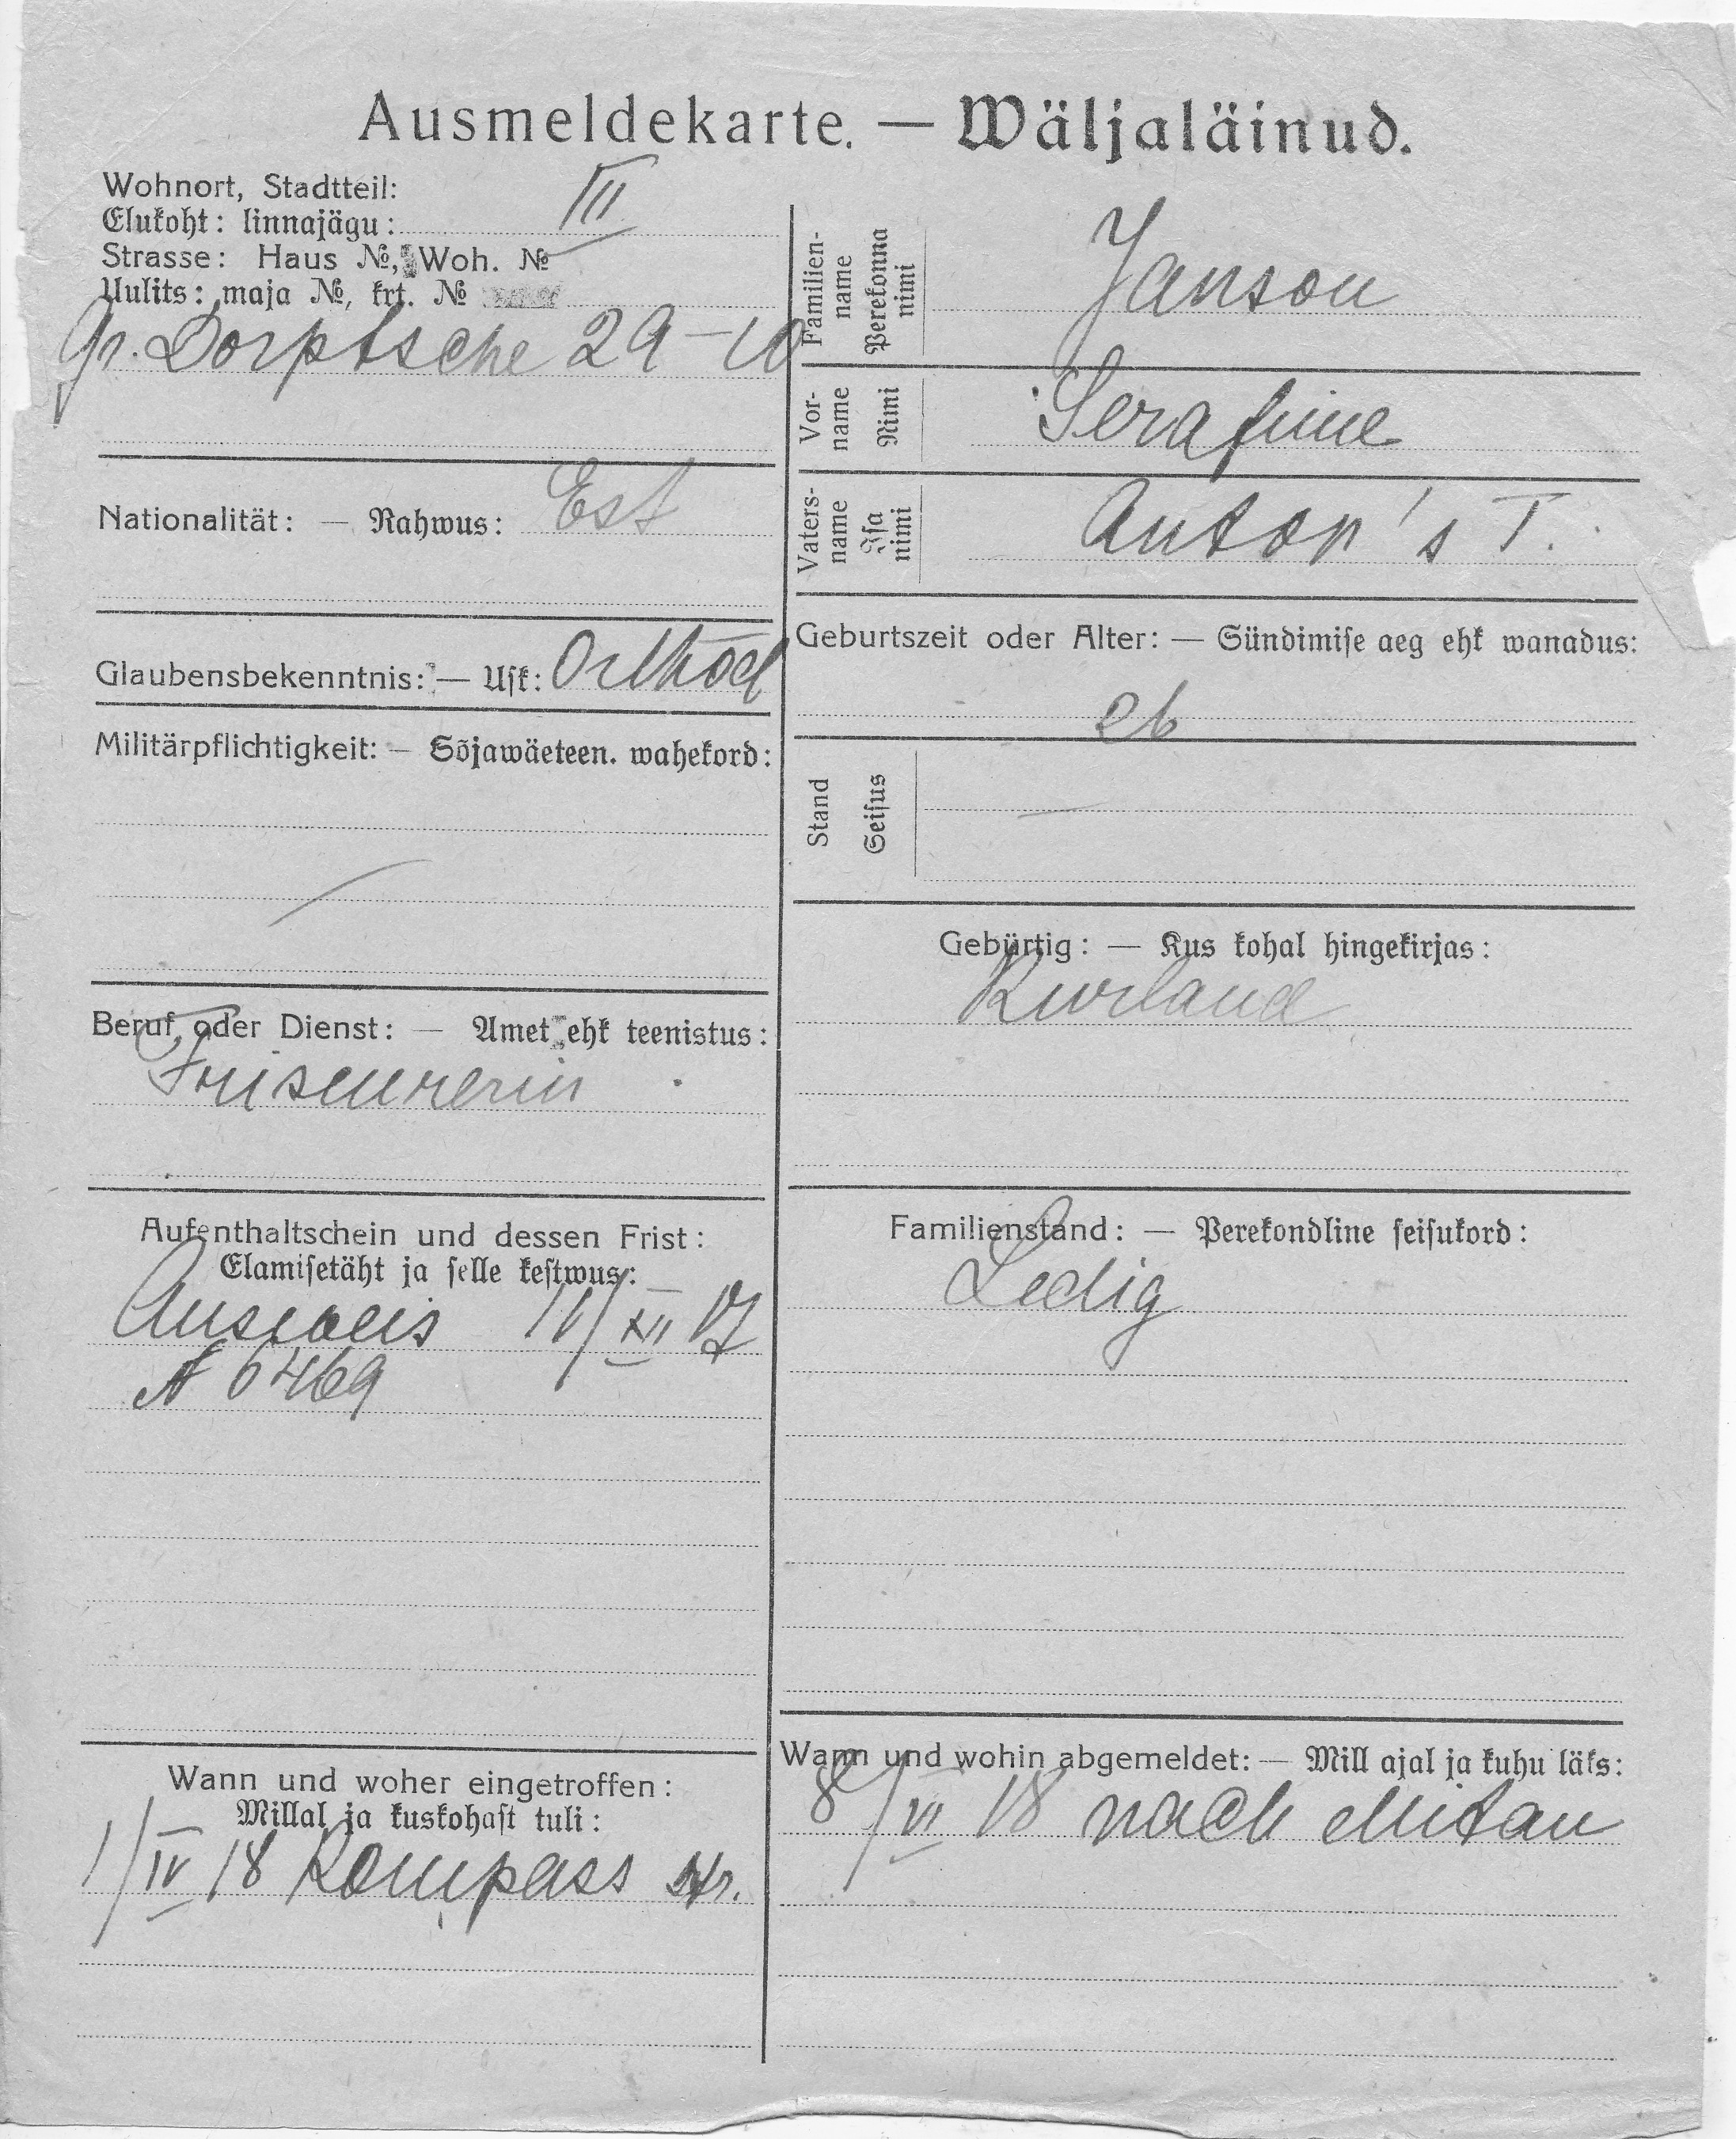 Ausmeldekarte. — Wäljaläinud.
Wohnort, Stadtteil:
Elukoht: linnajägu: III
Strasse: Haus №, Woh. №
Uulits: maja №, krt. №
gr. Dorptsche 29-10
Nationalität: — Rahwus: Est
Glaubensbekenntnis: — Usk: Orthod
Militärpflichtigkeit: — Sõjawäeteen. wahekord:
Beruf oder Dienst: — Amet ehk teenistus:
Friseurerin
Aufenthaltschein und dessen Frist:
Elamisetäht ja selle kestwus:
Ausweis 14/XII 17
№ 6469
Wann und woher eingetroffen:
Millal ja kuskohast tuli:
1/IV 18 Kompass Str.
Familien-
name
Perekonna
nimi
Janson
Vor-
name
Nimi
Serafine
Vaters-
name
Isa
nimi
Anton's T.
Geburtszeit oder Alter: — Sündimise aeg ehk wanadus:
26
Stand
Seisus
—
Gebürtig: — Kus kohal hingekirjas:
Kurland
Familienstand: — Perekondline seisukord:
Ledig
Wann und wohin abgemeldet: — Mill ajal ja kuhu läks:
8/VI 18 nach Mitau